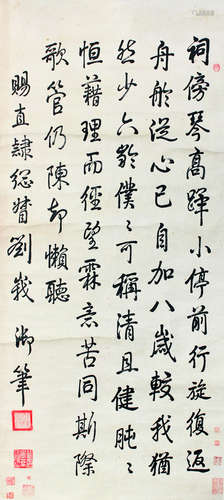 祠傍琴高蹕小停前行旋復返
舟舲從心已自加八歲較我猶
然少六齡僕〻可稱清且健肫〻
恒藉理而經望霖意苦同斯際
歌管仍陳却懶聽
賜直隸總督劉峩 御筆